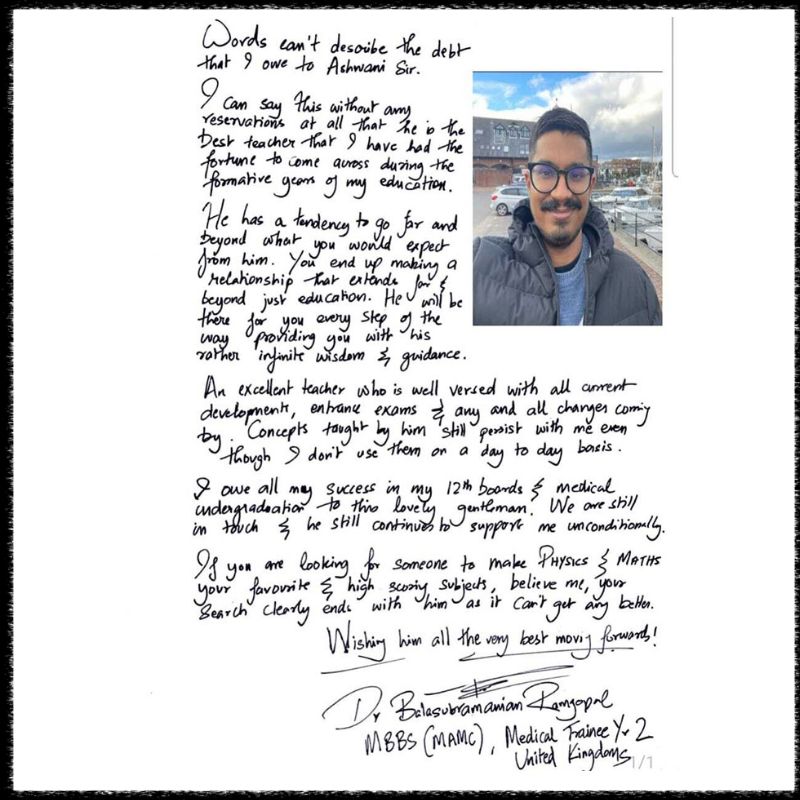 Words can't describe the debt
that I owe to Ashwani Sir.
I can say this without any
reservations at all that he is the
best teacher that I have had the
fortune to come across during the
formative years of my education.
He has a tendency to go far and
beyond what you would expect
from him. You end up making a
relationship that extends far &
beyond just education. He will be
there for you every step of the
way providing you with his
rather infinite wisdom & guidance.
An excellent teacher who is well versed with all current
development, entrance exams & any and all changes coming
by. Concepts taught by him still persist with me even
though I don't use them on a day to day basis.
I owe all my success in my 12th boards & medical
undergraduation to this lovely gentleman. We are still
in touch & he still continues to support me unconditionally.
If you are looking for someone to make PHYSICS & MATHS
your favourite & high scoring subjects, believe me, your
search clearly ends with him as it can't get any better.
Wishing him all the very best moving forwards!
Dr Balasubramanian Ramgopal
MBBS (MAMC), Medical Trainee Yr 2
United Kingdoms
1/1